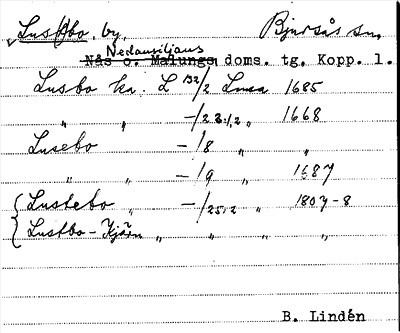 Lustbo, by. Bjursås sn.
Nedansiljans
Nås o. Malungs doms. tg. Kopp. l.
Lusbo ha. L 132/2 Lmsa 1685
" " -/2 3:1,2 " 1668
Lusebo -/8 " "
" " -/9 " 1687
Lustebo " -/25:2 " 1807-8
Lustbo-Kjärn " " " "
B. Lindén